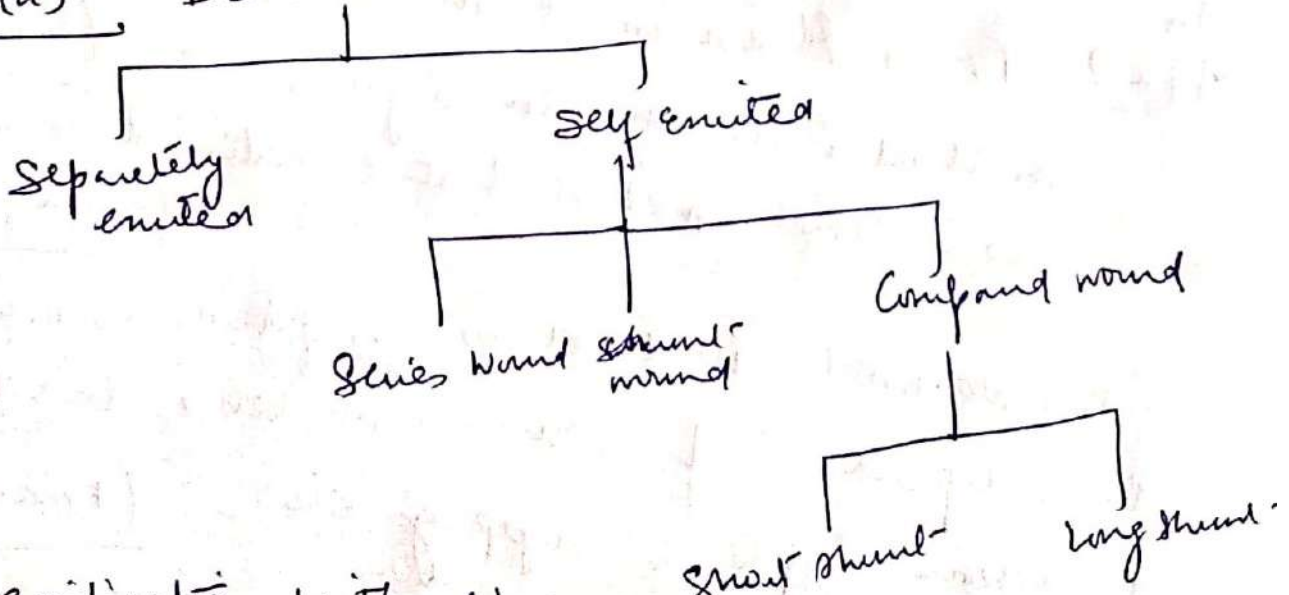 (a)
Separately
excited
Self excited
Series wound shunt
wound
Compound wound
Short shunt
Long shunt